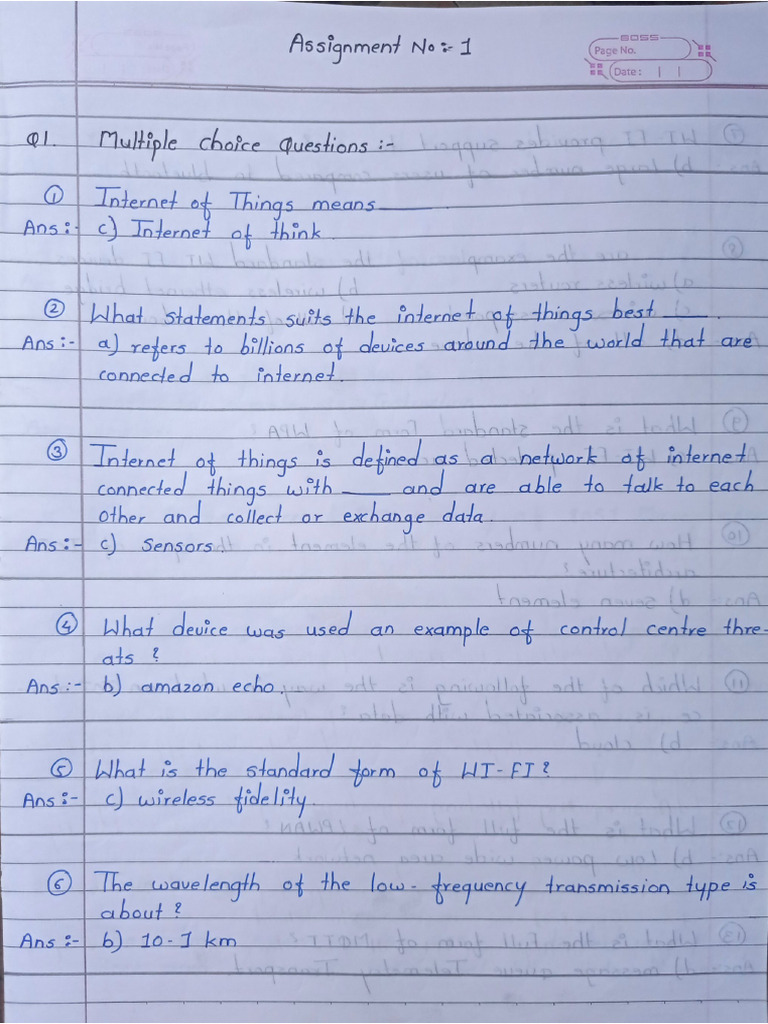 Assignment No:- 1
BOSS
Page No.
Date: | |
Q1. Multiple choice Questions :-
① Internet of Things means ______.
Ans:- c) Internet of think.
② What statements suits the internet of things best ____.
Ans:- a) refers to billions of devices around the world that are
connected to internet.
③ Internet of things is defined as a network of internet
connected things with ____ and are able to talk to each
other and collect or exchange data.
Ans:- c) sensors.
④ What device was used an example of control centre thre-
ats ?
Ans:- b) amazon echo.
⑤ What is the standard form of WI-FI?
Ans:- c) wireless fidelity.
⑥ The wavelength of the low-frequency transmission type is
about ?
Ans:- b) 10-1 km